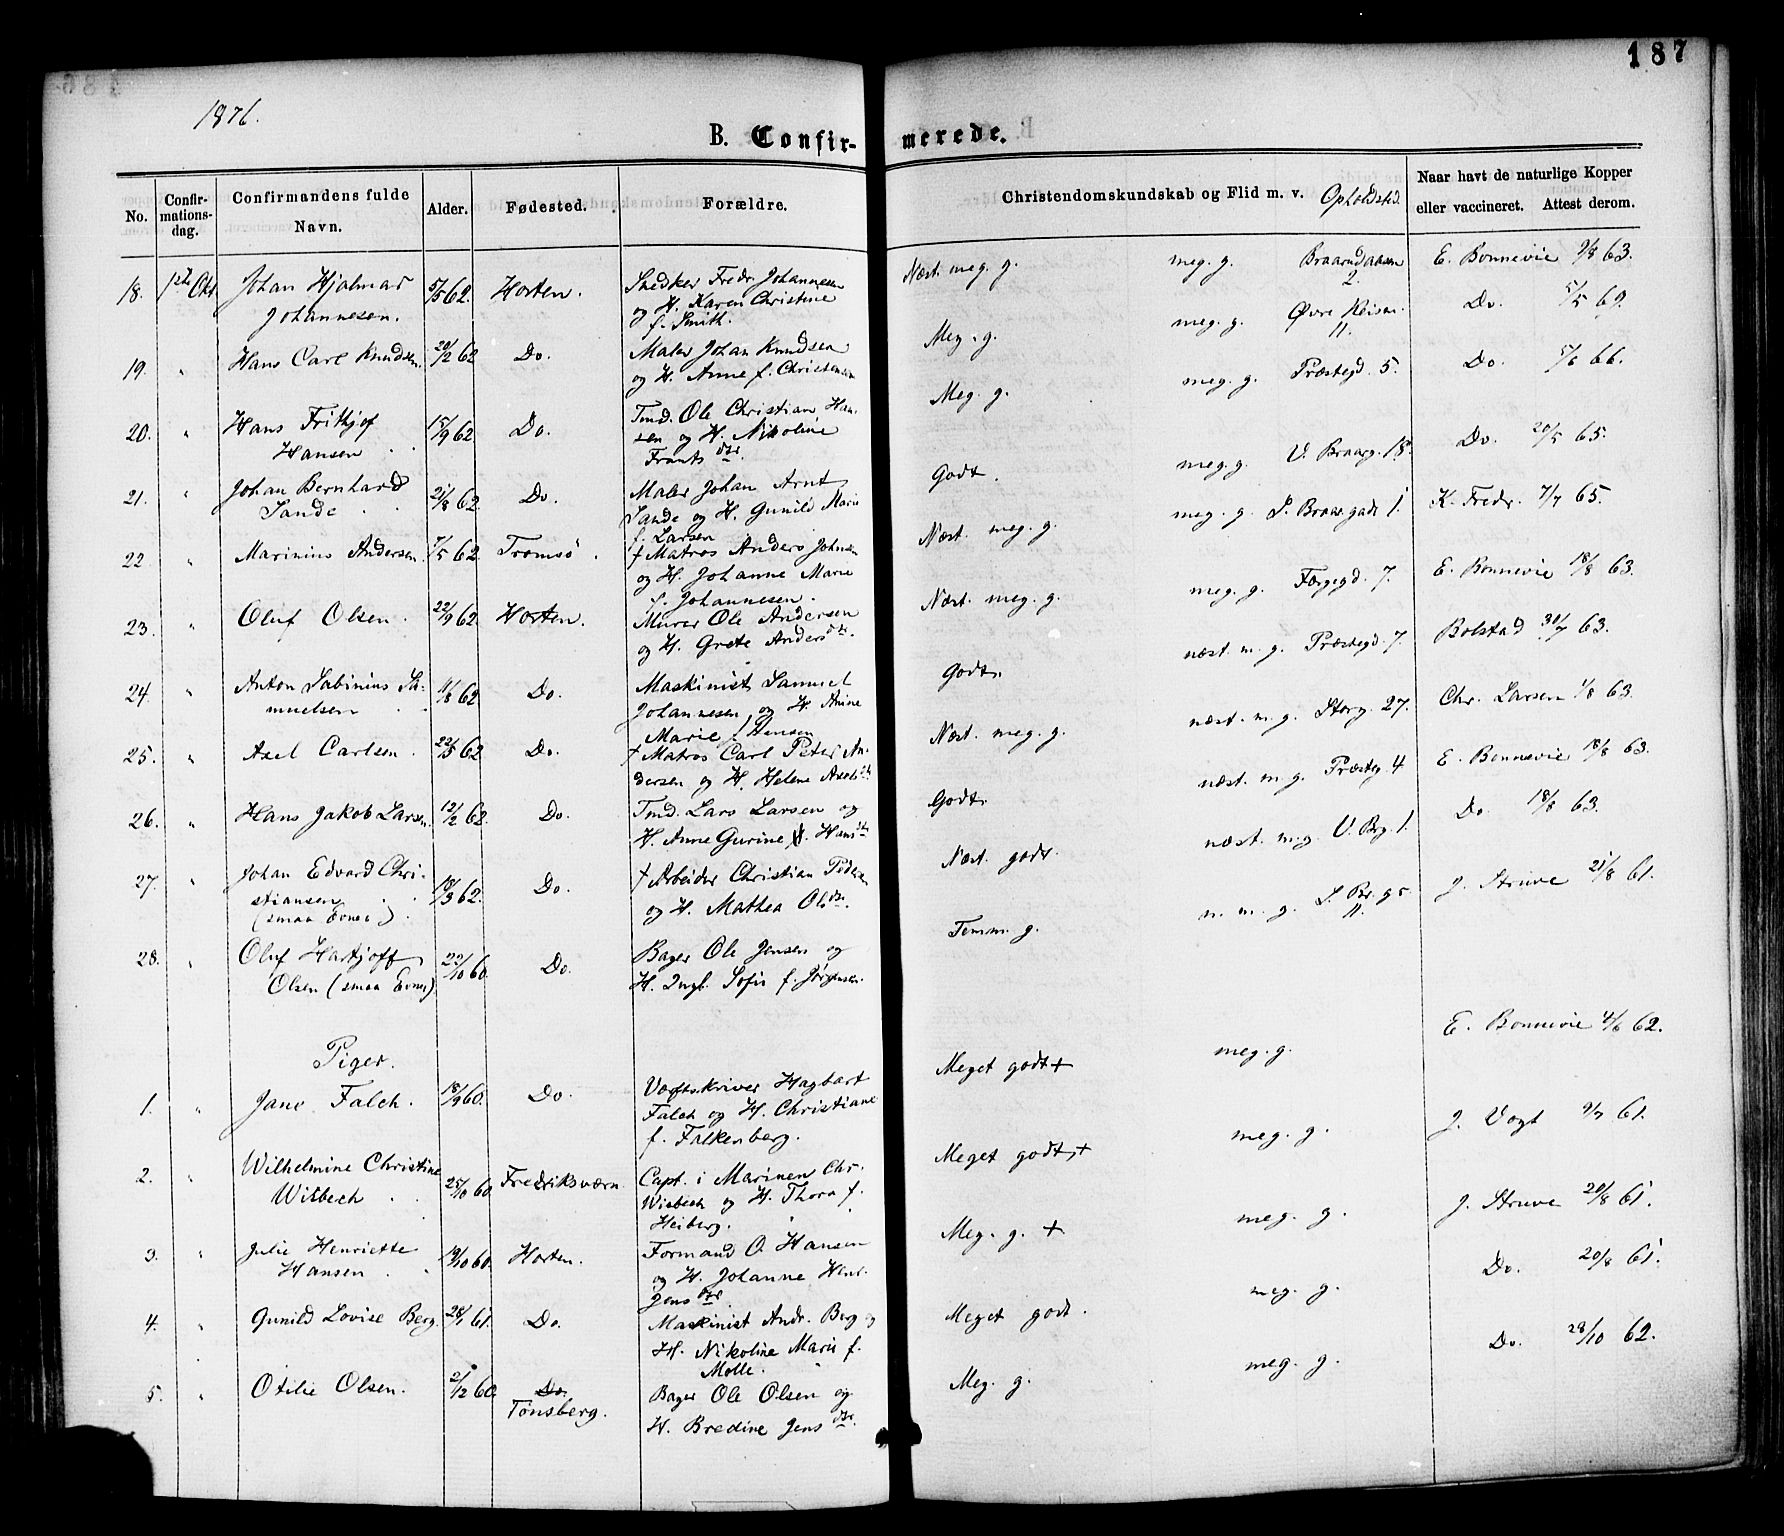 187
1876.
B. Confir-merede.
No.
Confir-mations-dag.
Confirmandens fulde Navn.
Alder.
Fødested.
Forældre.
Christendomskundskab og Flid m. v. Opholdsted.
Naar havt de naturlige Kopper eller vaccineret. Attest derom.
18. 1ste Okt Johan Hjalmar 5/5 62. Horten. Snedker Fredr. Johannesen Næst. meg. g. meg. g. E. Bonnevie 9/8 63.
Johannesen. og H. Karen Christine 2.
f. Smith.
19. " Hans Carl Knudsen. 20/2 62 Do. Maler Johan Knudsen Meg. g. meg. g. Øvre Keiser. Do. 5/5 69.
og H. Anne f. Christensen 11.
20. " Hans Frithjof 15/9 62 Do. Tmd. Ole Christian Han- Meg. g. meg. g. Præstegd. 5. Do. 66.
Hansen sen og H. Nikoline
Frants dtr.
21. " Johan Bernhard 21/8 62 Do. Maler Johan Arnt Godt. meg. g. V. Braarg. 18. Do. 20/5 65.
Sande Sande og H. Gunild Marie
f. Larsen
22 " Marinius Andersen. 7/5 62 Tromsø. † Matros Anders Johnsen Næst. meg. g. meg. g. 1. K. Fredr. 7/7 65.
og H. Johanne Marie
f. Johannesen.
23. " Oluf Olsen. 22/9 62 Horten. Murer Ole Andersen Næst. meg. g. meg. g. Færgegd. 7. E. Bonnevie 18/8 63.
og H. Grete Anders dtr.
24. " Anton Sabinius Sa- 11/8 62 Do. Maskinist Samuel Godt. næst. m. g. Præstegd. 7. Bolstad 30/7 63.
muelsen Johannesen og H. Anine
Marie f. Hansen
25. " Axel Carlsen. 22/5 62 Do. † Matros Carl Peter An- Næst. meg. g. næst. m. g. Storg. 27. Chr. Larsen 1/8 63.
dersen og H. Helene Axels dtr
26. " Hans Jakob Larsen. 12/2 62. Do. Tmd. Lars Larsen og Godt. næst. m. g. Præsteg. 4 E. Bonnevie 18/8 63.
H. Anne Gurine Hans dtr
27. " Johan Edvard Chri- 18/3 62. Do. † Arbeider Christian Peders Næst. godt. næst. m. g. V. Brg. 1. Do. 18/8 63.
stiansen og H. Mathea Ols dtr.
(smaa Evner).
28. " Oluf Hartjoff 22/10 60. Do. Bager Ole Jensen og Temm. g. n. m. g. 11. J. Struve 21/8 61.
Olsen (smaa Evner) H. Ingb. Sofie f. Jørgensen.
Piger.
1. " Jane Falch. 18/9 60. Do. Værftskriver Hagbart Meget godt + meg. g. E. Bonnevie 4/6 62.
Falch og H. Christiane
f. Falkenberg.
2. " Wilhelmine Christine 25/10 60 Fredriksværn. Capt. i Marinen Chr. Meget godt + meg. g. J. Vogt 9/7 61.
Wisbech Wisbech og H. Thora f.
Heiberg.
3. " Julie Henriette 19/10 60. Horten. Formand O. Hansen Meg. g. + meg. g. J. Struve 20/8 61.
Hansen og H. Johanne Henr.
Jens dtr.
4. " Gunild Lovise Berg. 28/1 61. Do. Maskinist Andr. Berg og Meget godt. meg. g. Do. 20/8 61.
H. Nikoline Marie f.
Molle.
5. " Otilie Olsen. 2/12 60. Do. Bager Ole Olsen og Meg. g. meg. g. Do. 28/10 62.
Tønsberg. H. Bredine Jens dtr.